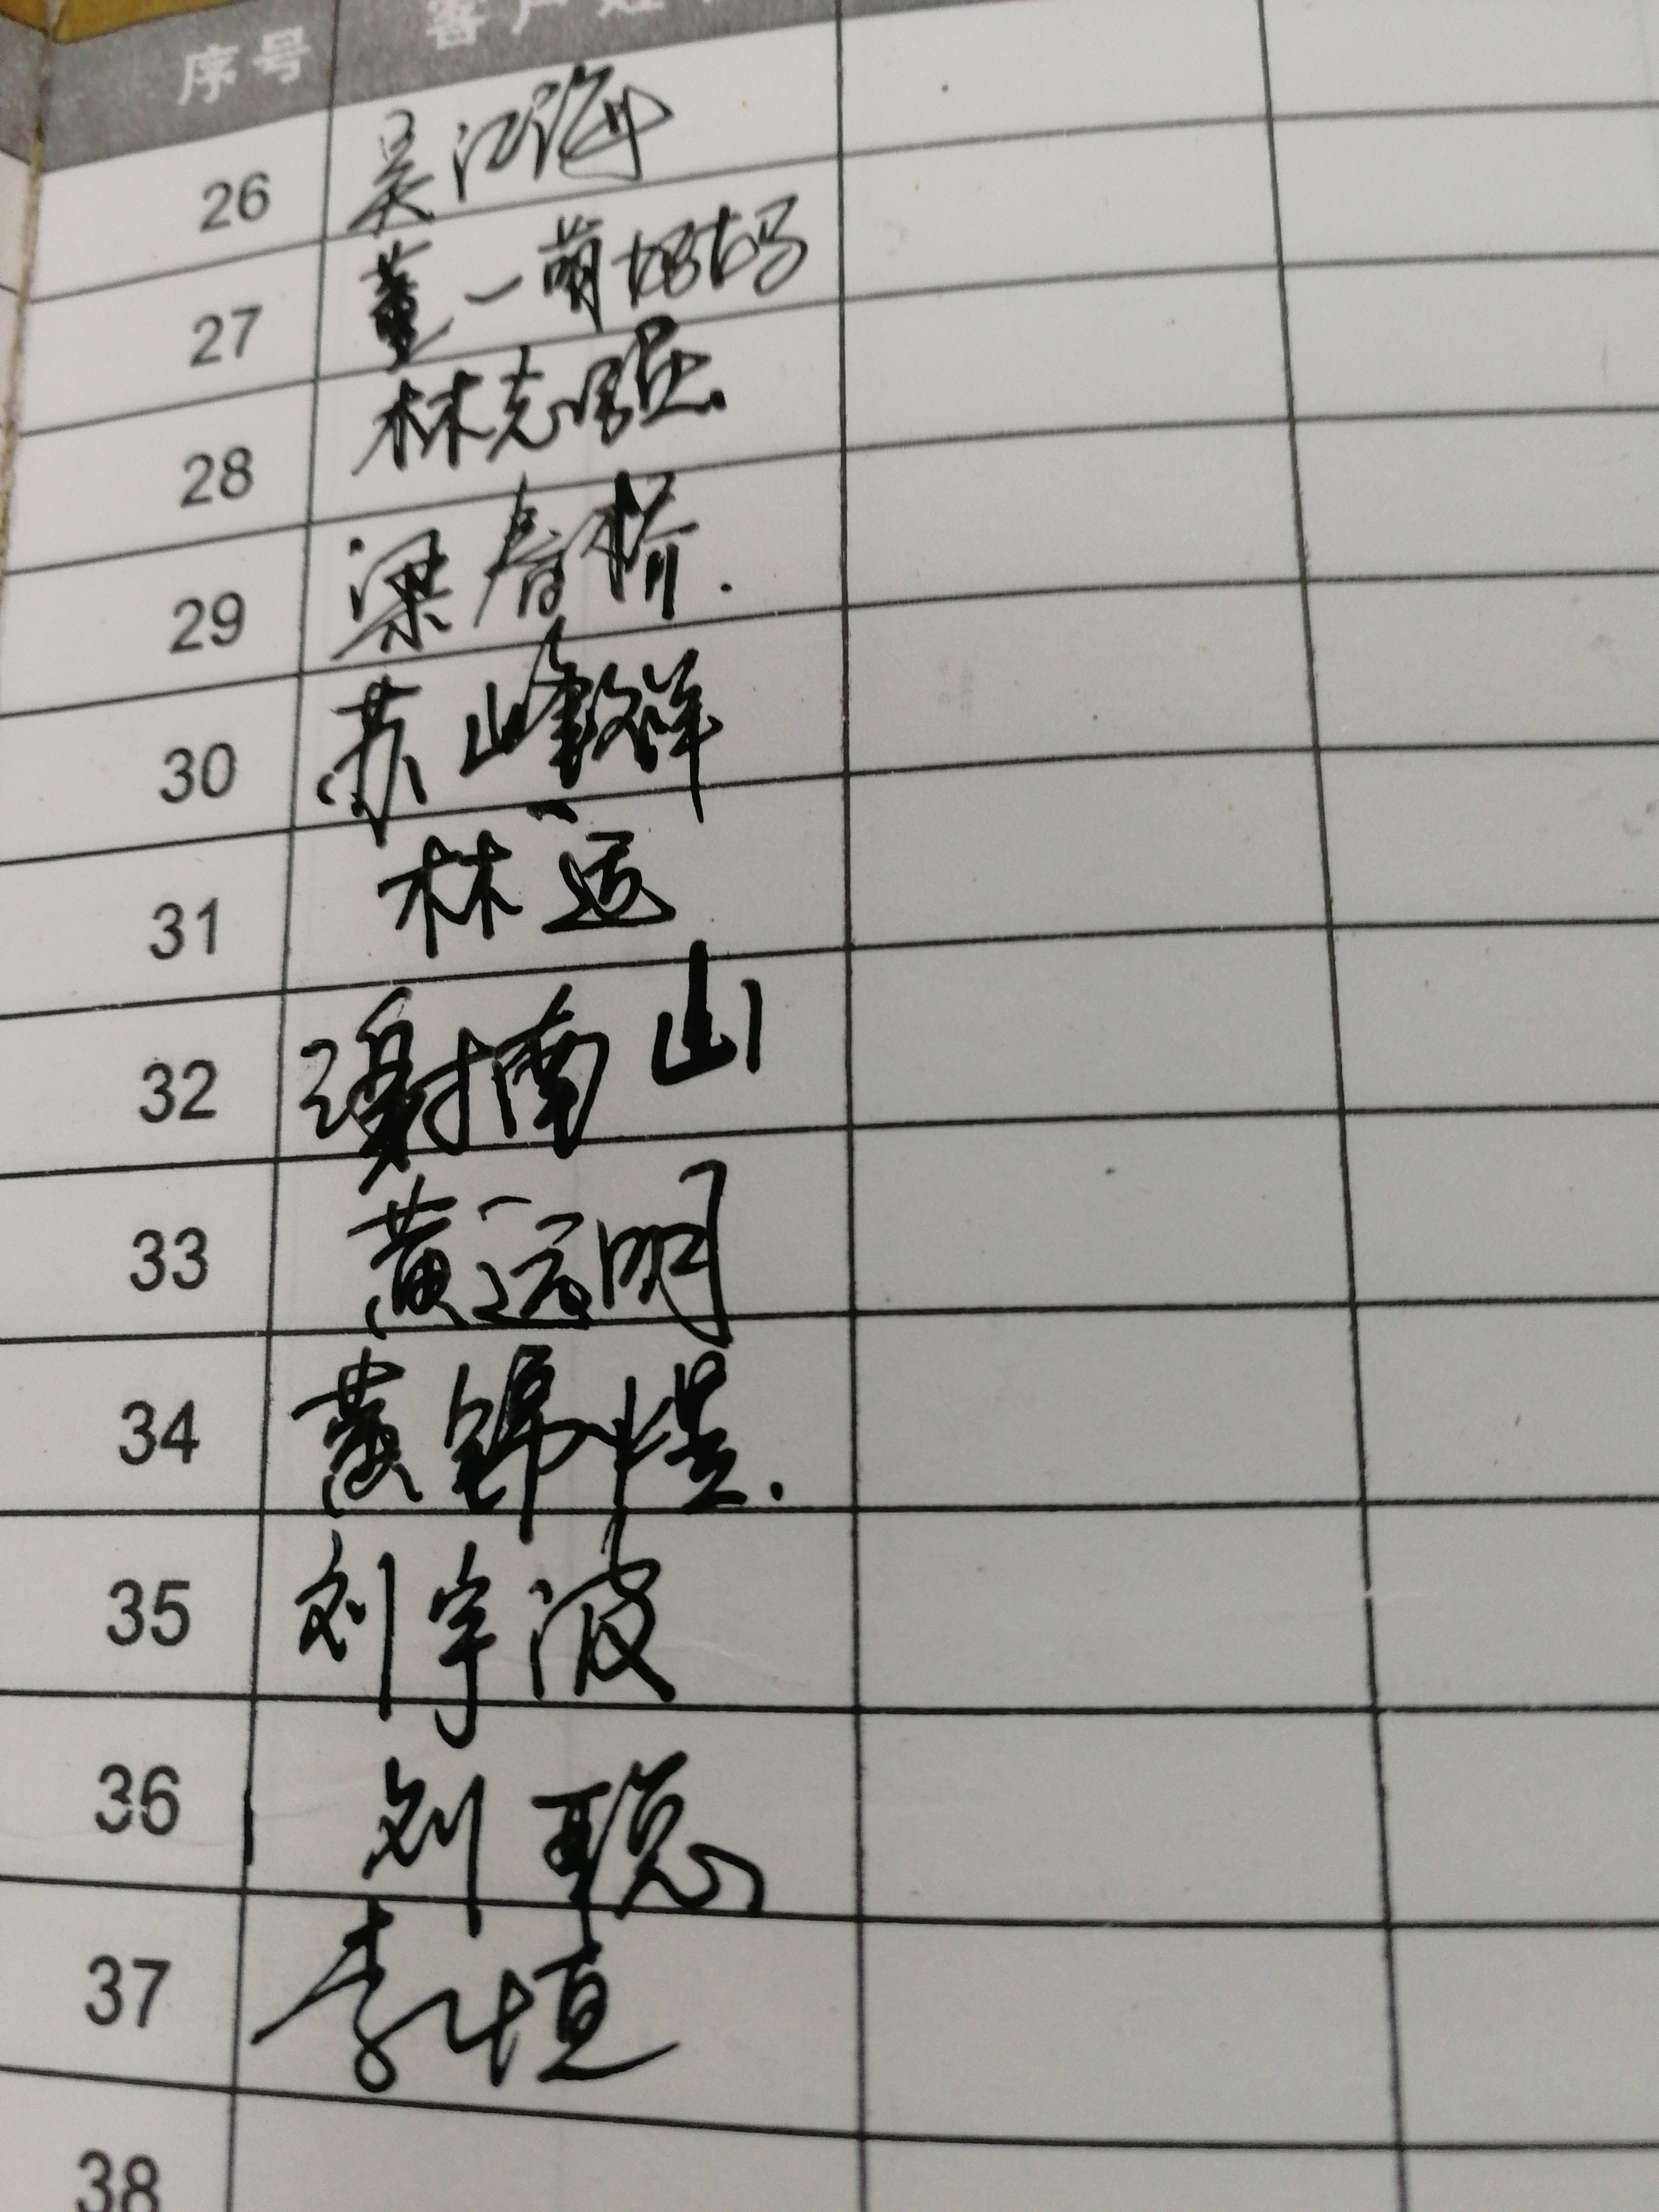 序号 客户姓
26 吴江海
27 董一萌妈妈
28 林克强
29 梁春桥.
30 苏峰祥
31 林适
32 谢南山
33 黄远明
34 黄锦煌.
35 刘宇波
36 刘聪
37 李恒
38